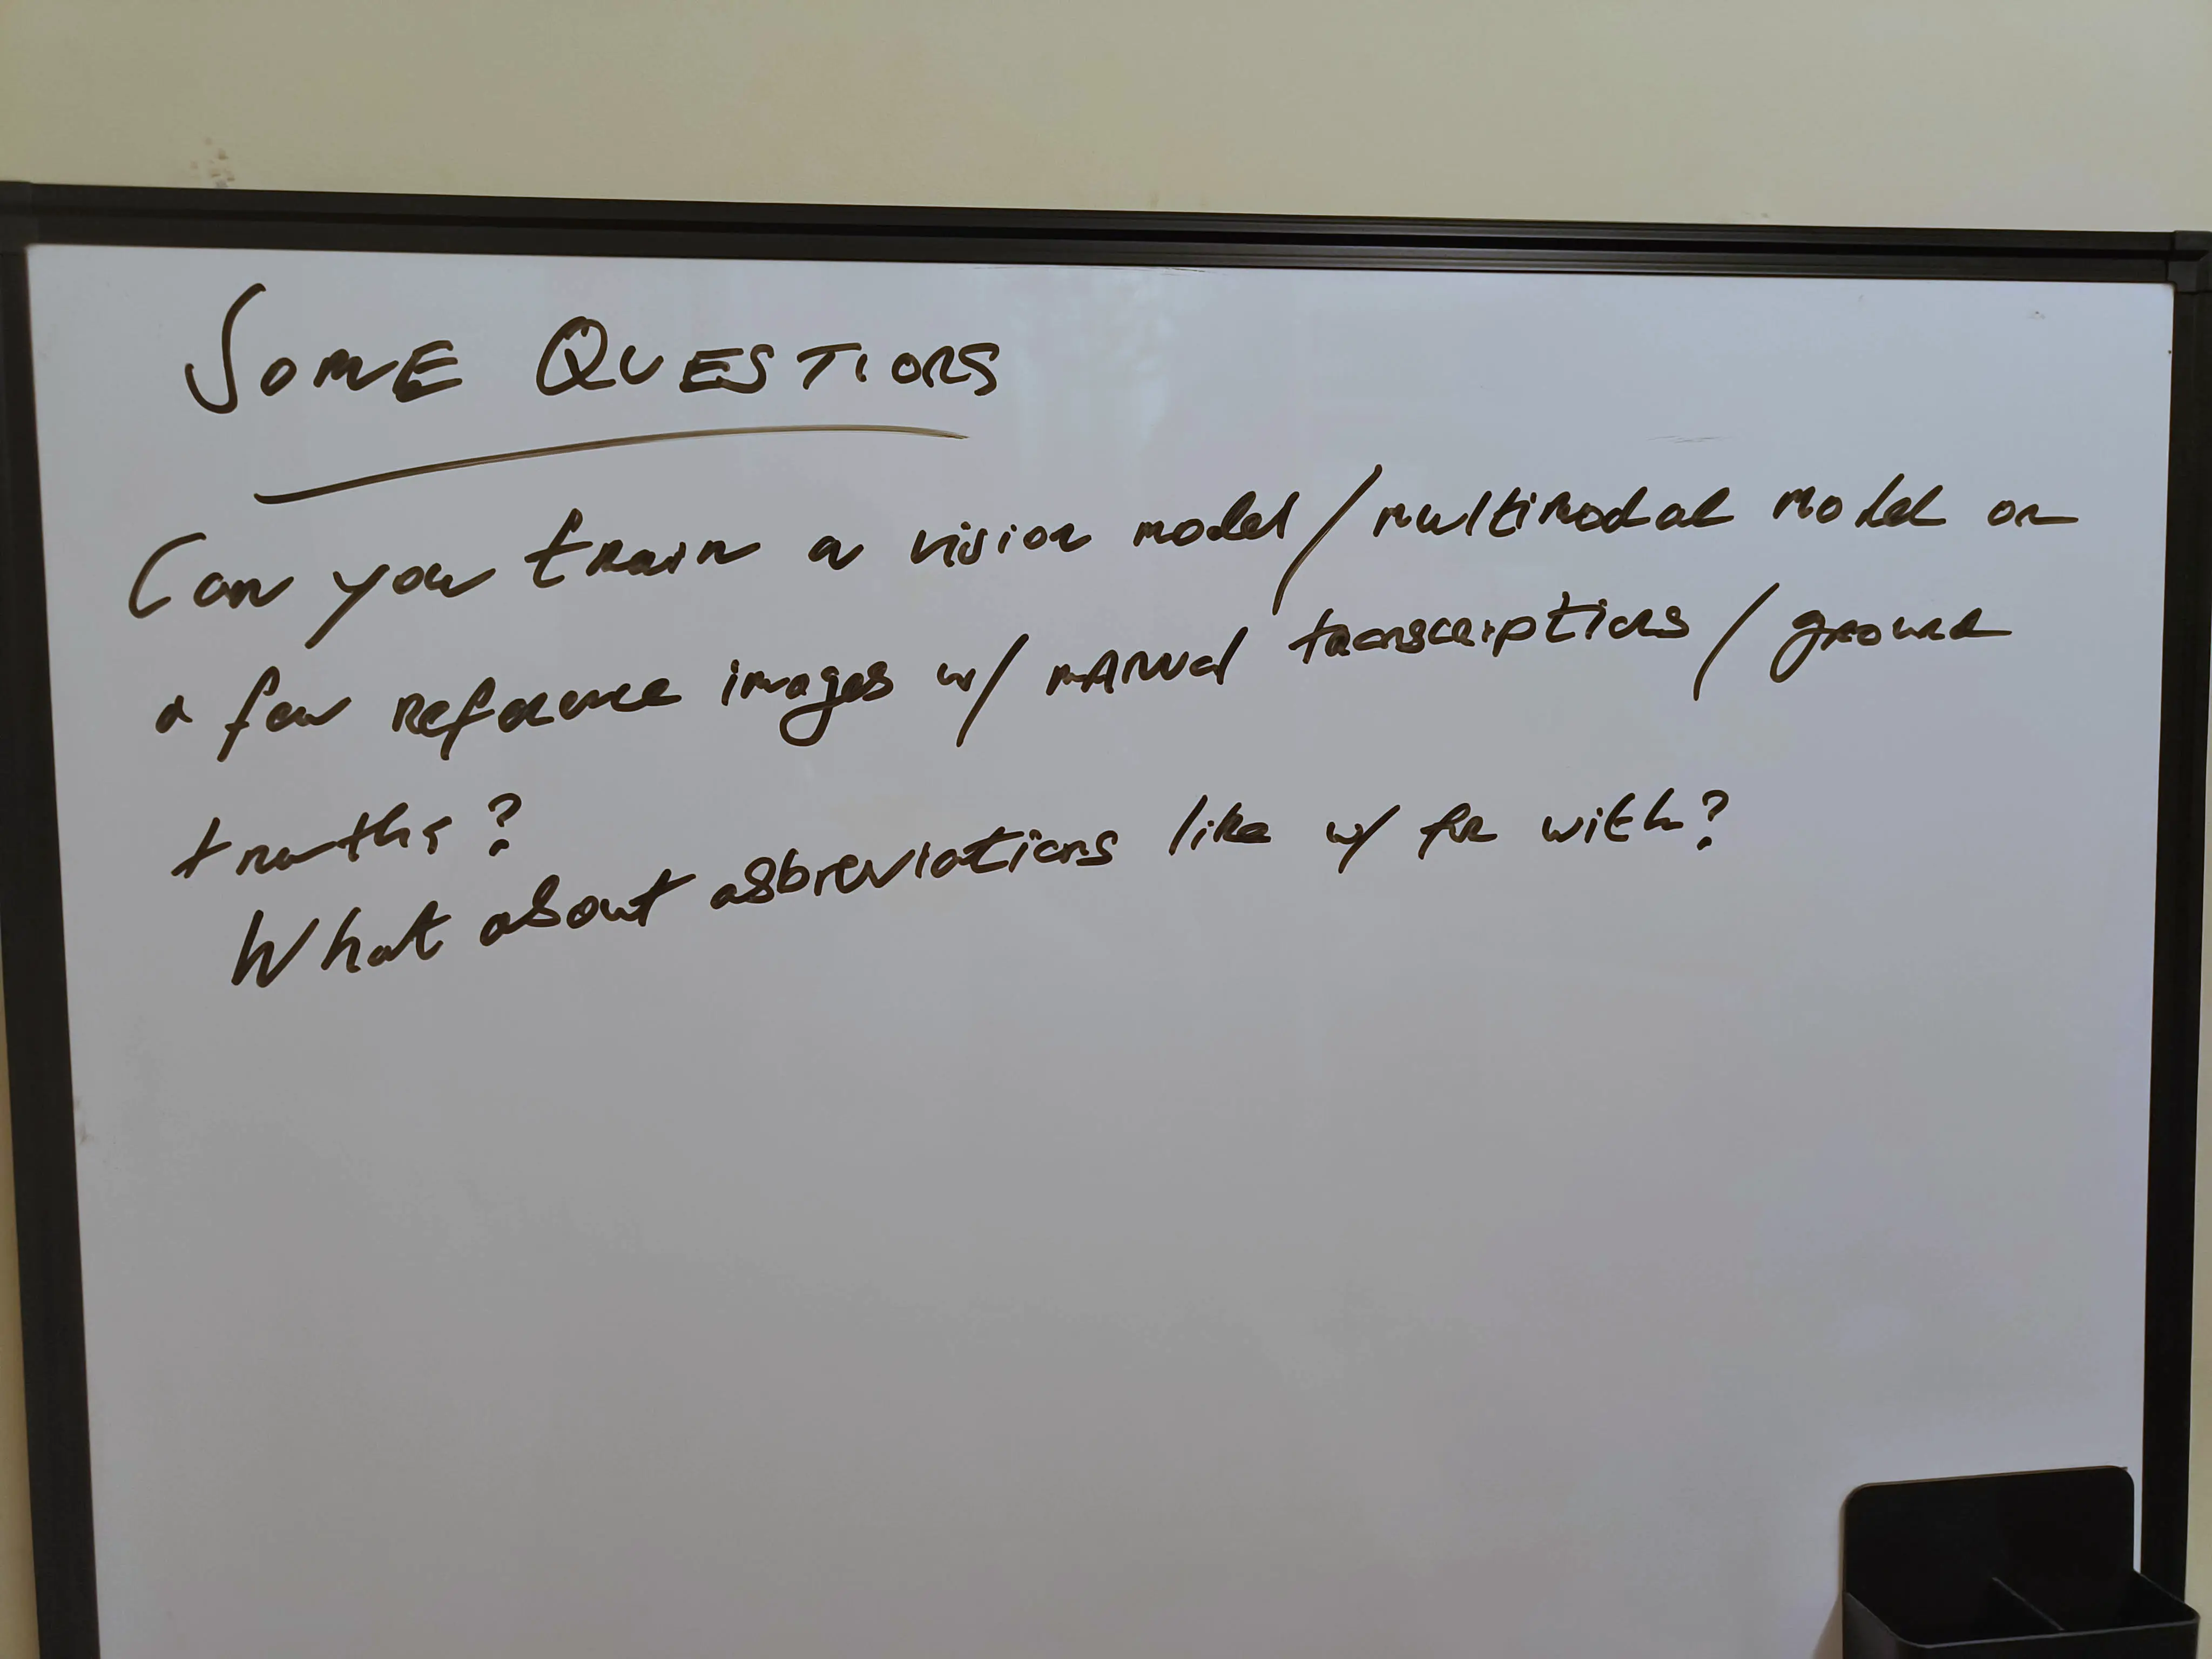 SOME QUESTIONS
Can you train a vision model/multimodal model on
a few reference images w/ manual transcriptions/ground
truths?
What about abbreviations like w/ for with?